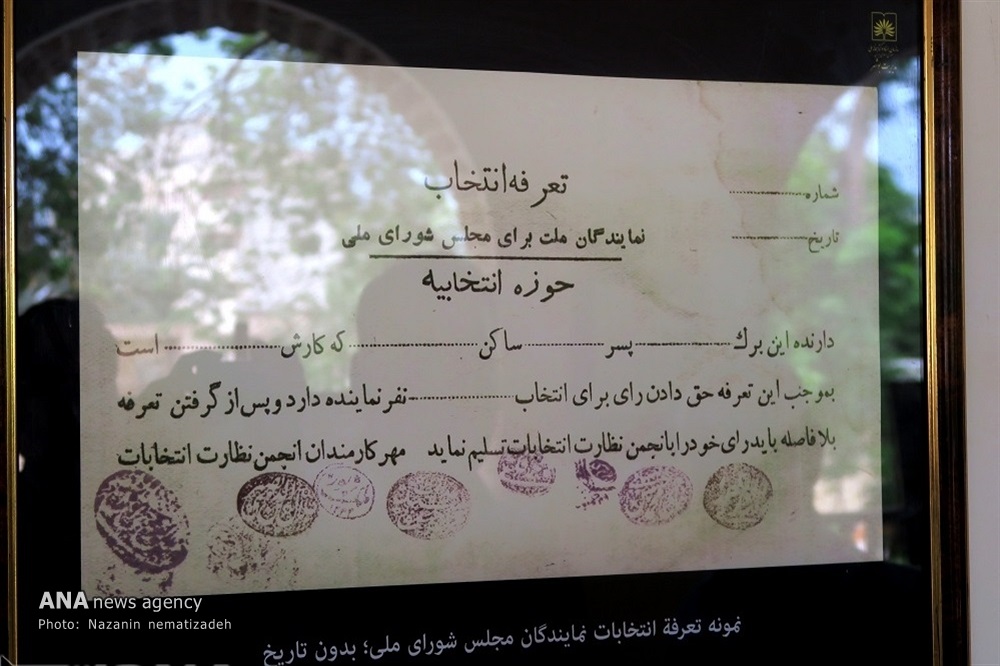 تعرفه انتخاب
شماره
نمایندگان ملت برای مجلس شورای ملی
تاریخ
حوزه انتخابیه
دارنده این برك ........ پسر ........ ساکن ........ که کارش ........ است
بموجب این تعرفه حق دادن رای برای انتخاب ........ نفر نماینده دارد و پس از گرفتن تعرفه
بلافاصله باید رای خود را بانجمن نظارت انتخابات تسلیم نماید مهر کارمندان انجمن نظارت انتخابات
ANA news agency
Photo: Nazanin nematizadeh
نمونه تعرفة انتخابات نمایندگان مجلس شورای ملی؛ بدون تاریخ